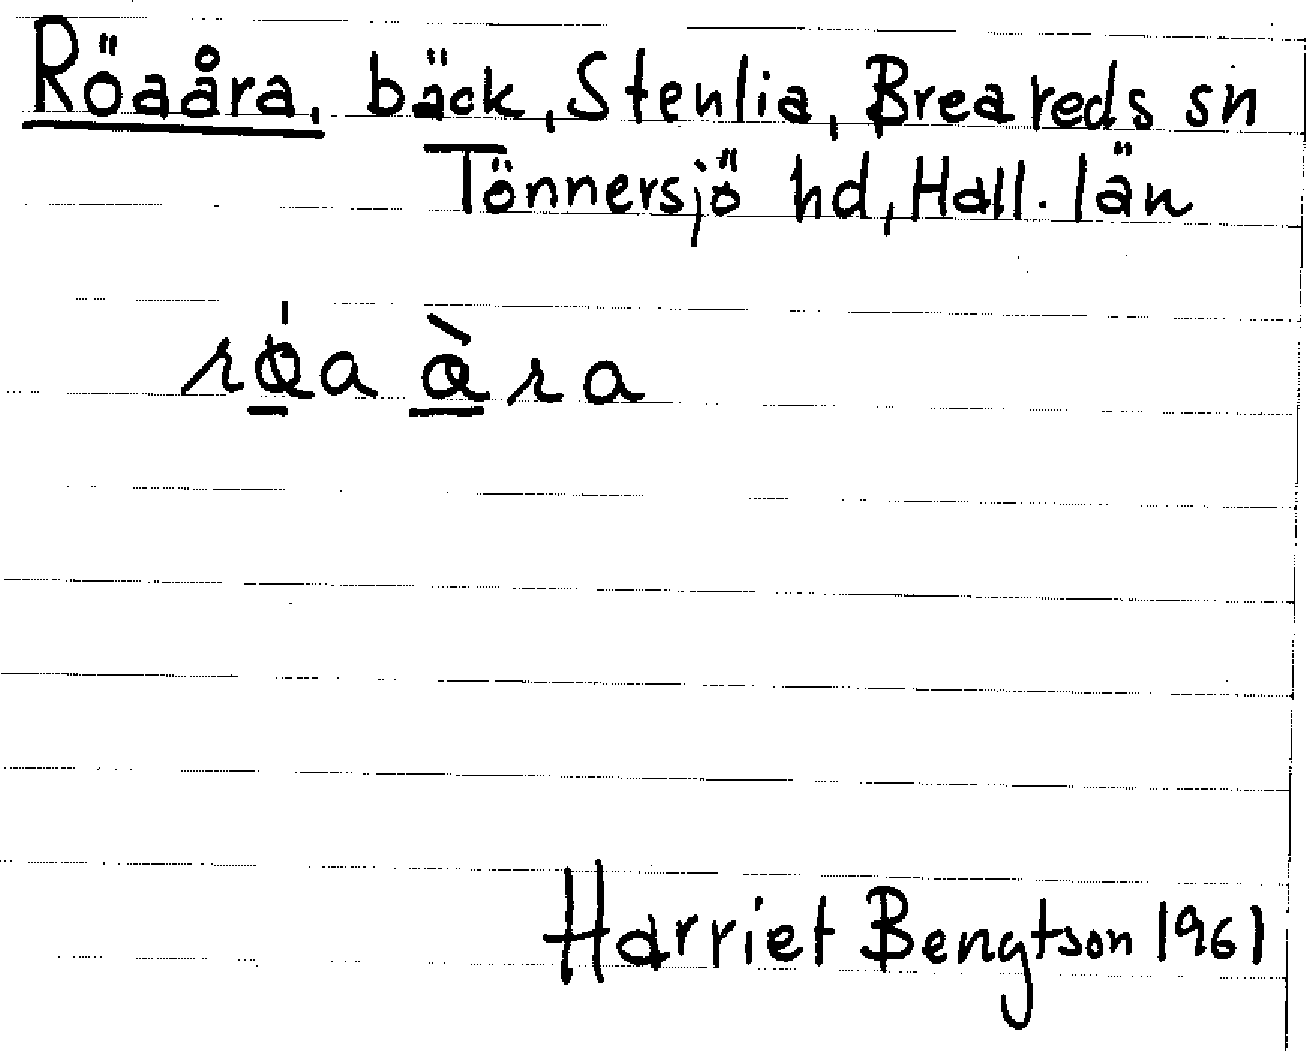 Röaåra, bäck, Stenlia, Breareds sn
Tönnersjö hd, Hall. län
Harriet Bengtson 1961